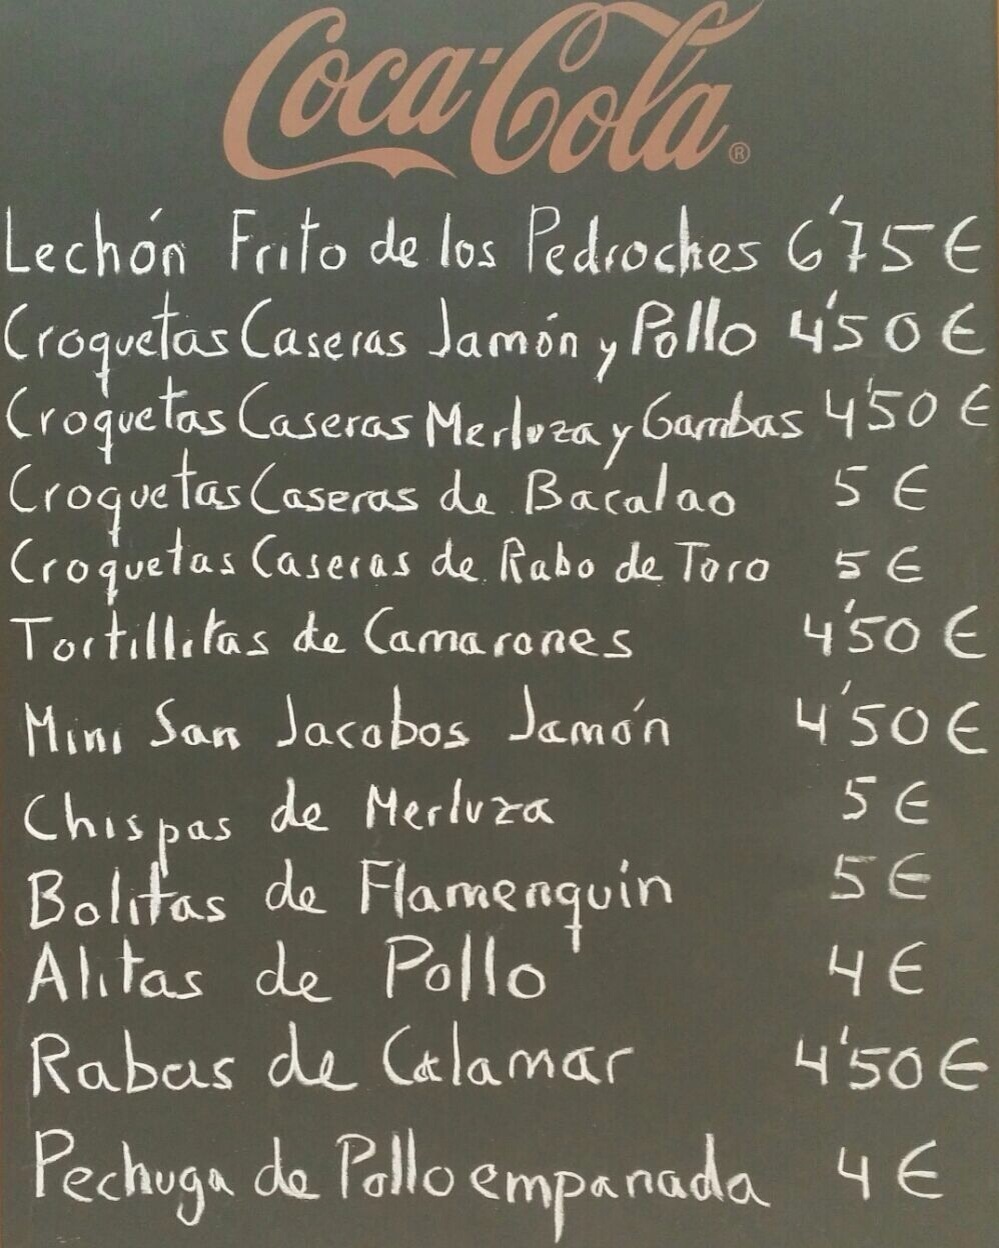 Coca-Cola ®
Lechón Frito de los Pedroches 6'75 €
Croquetas Caseras Jamón y Pollo 4'50 €
Croquetas Caseras Merluza y Gambas 4'50 €
Croquetas Caseras de Bacalao 5 €
Croquetas Caseras de Rabo de Toro 5 €
Tortillitas de Camarones 4'50 €
Mini San Jacobos Jamón 4'50 €
Chispas de Merluza 5 €
Bolitas de Flamenquín 5 €
Alitas de Pollo 4 €
Rabas de Calamar 4'50 €
Pechuga de Pollo empanada 4 €